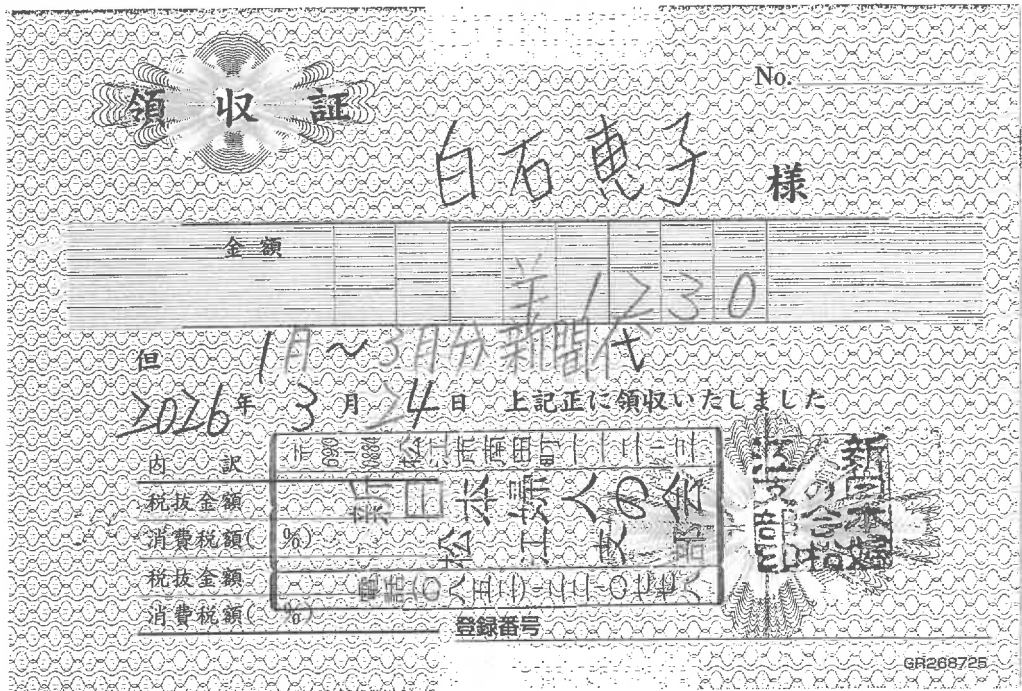 領収証
No.
白石恵子 様
金額
¥1230
但 1月〜3月分新聞代
2026年3月24日 上記正に領収いたしました
内訳
税抜金額
消費税額( %)
税抜金額
消費税額( %)
新日本婦人の会
松江支部
登録番号
GR268725